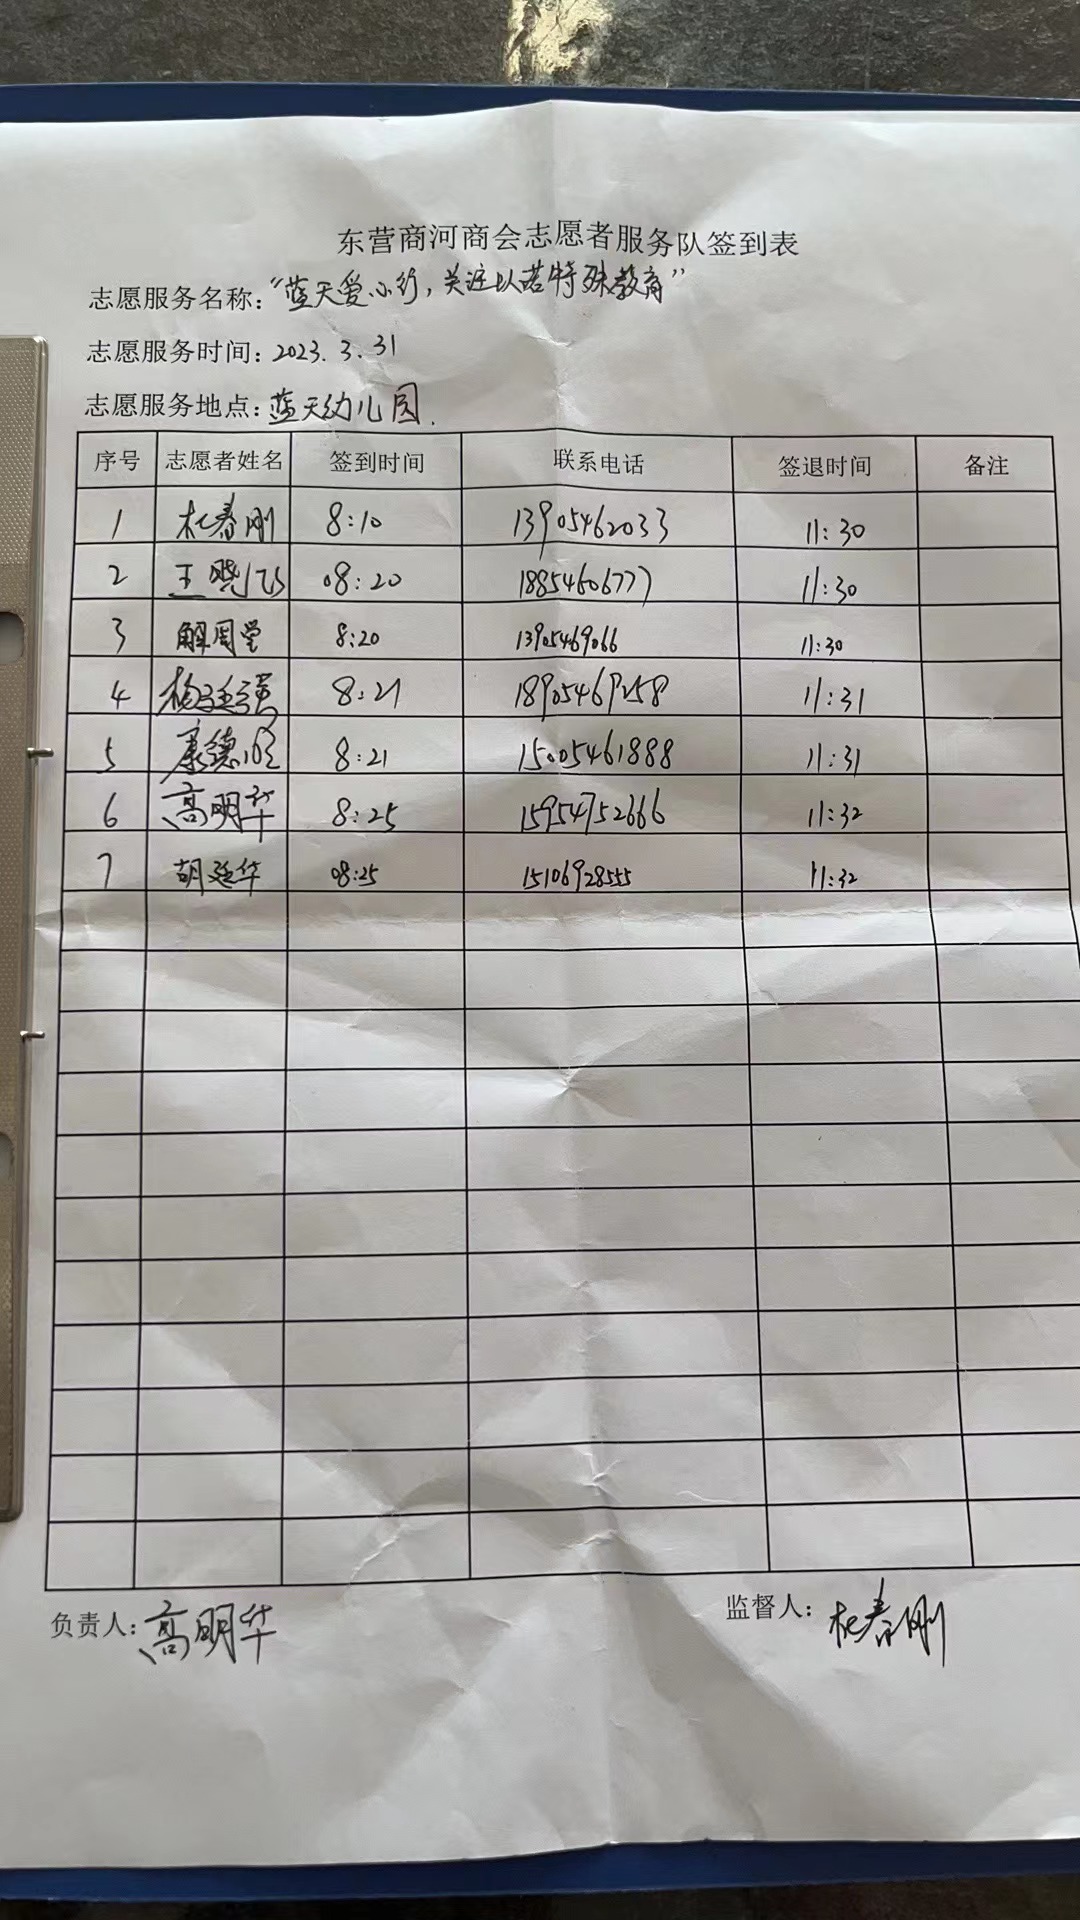 东营商河商会志愿者服务队签到表
志愿服务名称：“蓝天爱心行，关注以诺特殊教育”
志愿服务时间：2023.3.31
志愿服务地点：蓝天幼儿园.
序号 志愿者姓名 签到时间 联系电话 签退时间 备注
1 杜春刚 8:10 13905462033 11:30
2 王晓 08:20 18854606777 11:30
3 解周堂 8:20 13905469066 11:30
4 杨廷强 8:21 18905469258 11:31
5 康德 8:21 15005461888 11:31
6 高明华 8:25 15954752666 11:32
7 胡延华 08:25 15106928555 11:32
负责人：高明华 监督人：杜春刚